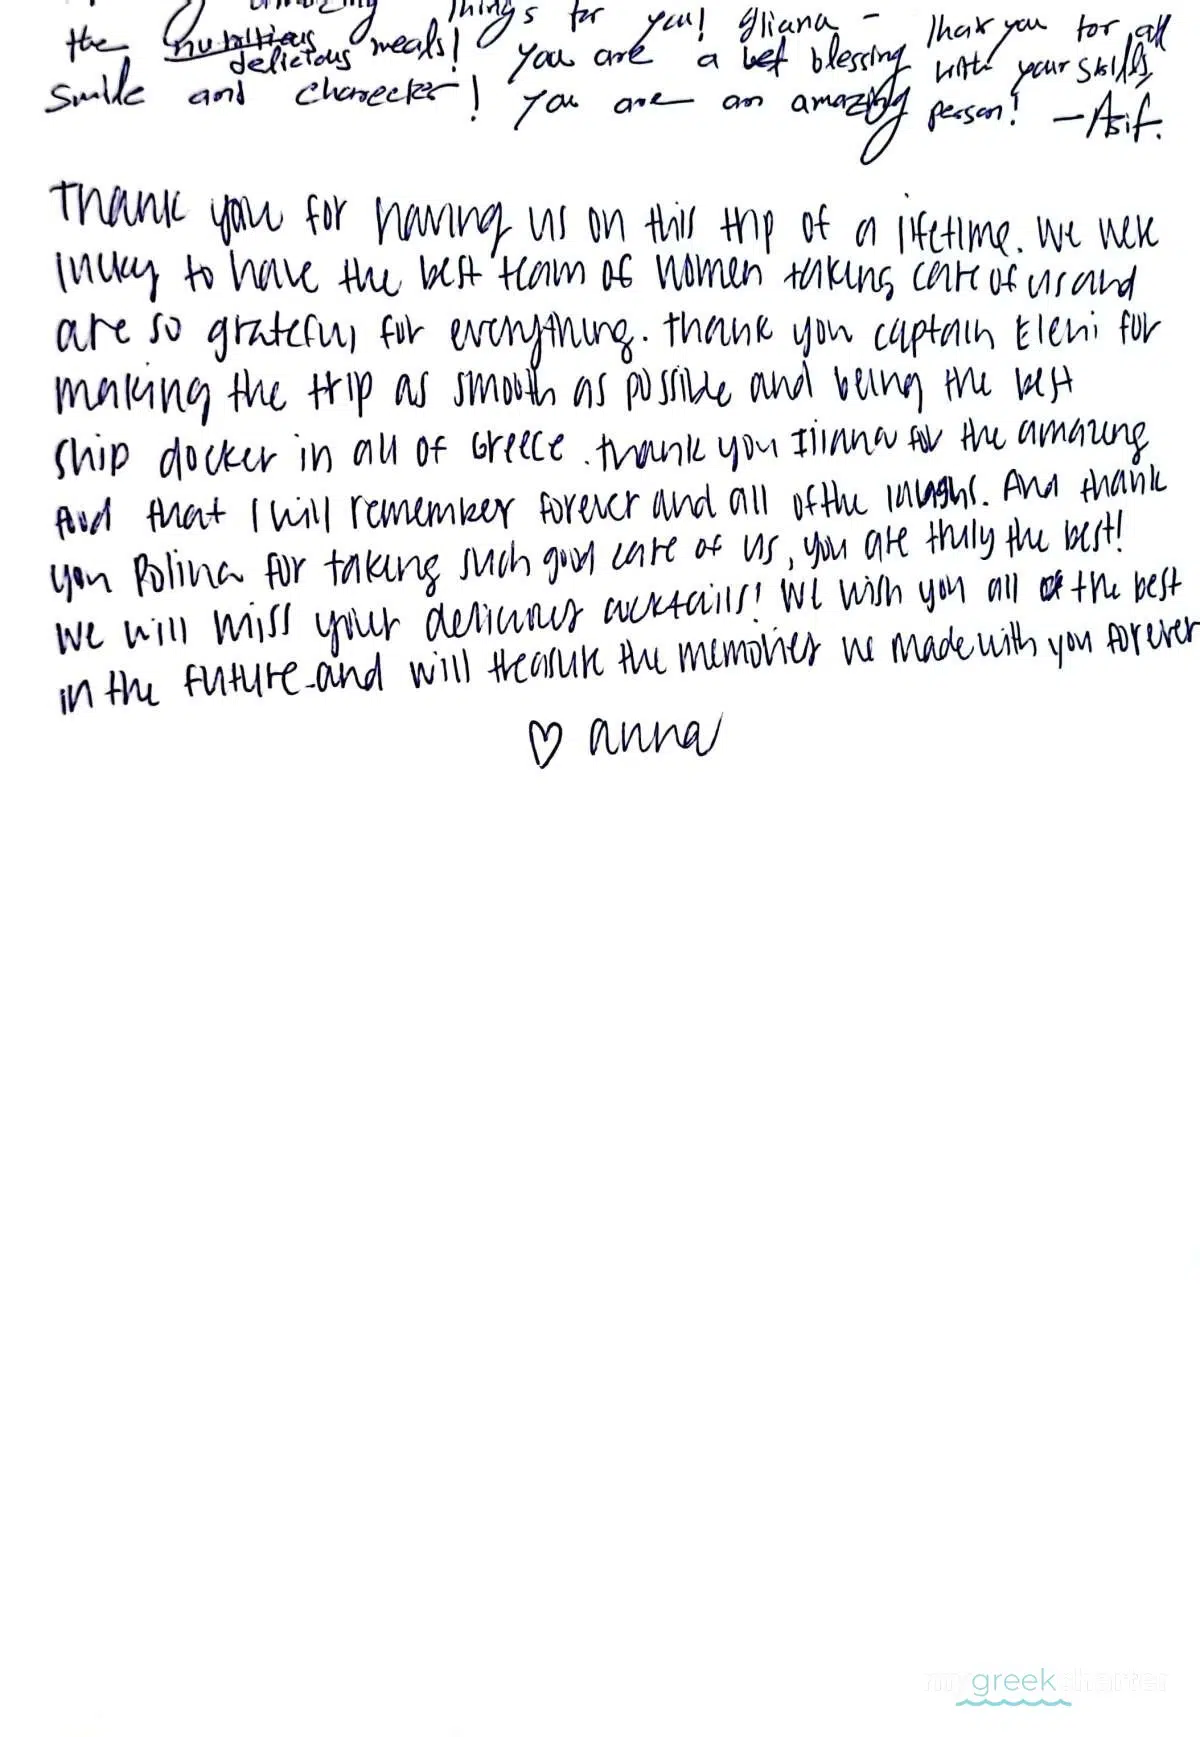 amazing things for you! Iliana - Thank you for all
the nutritious delicious meals! You are a blessing with your skills,
smile and charecter! You are an amazing person! -Asif.
Thank you for having us on this trip of a lifetime. We were
lucky to have the best team of women taking care of us and
are so grateful for everything. Thank you captain Eleni for
making the trip as smooth as possible and being the best
ship docker in all of Greece. Thank you Iliana for the amazing
food that I will remember forever and all of the laughs. And thank
you Polina for taking such good care of us, you are truly the best!
We will miss your delicious cocktails! We wish you all the best
in the future and will treasure the memories we made with you forever
♡ anna
mygreekcharter